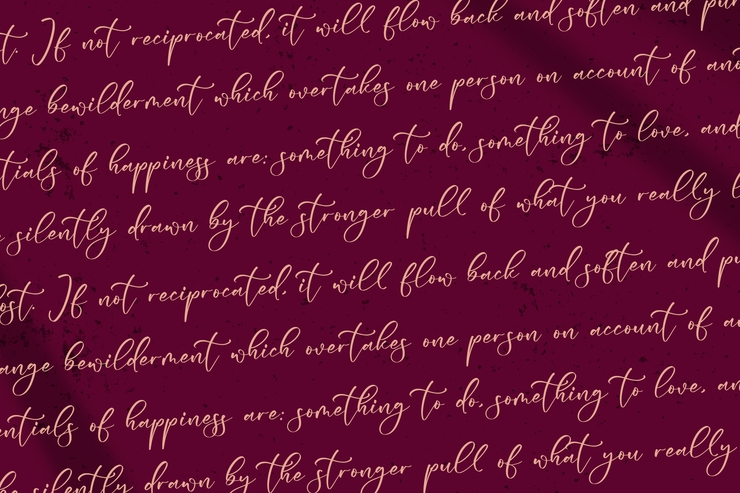 t. If not reciprocated, it will flow back and soften and pu
nge bewilderment which overtakes one person on account of ano
tials of happiness are: something to do, something to love, and
e silently drawn by the stronger pull of what you really l
ost. If not reciprocated, it will flow back and soften and pu
ange bewilderment which overtakes one person on account of a
entials of happiness are: something to do, something to love, an
be silently drawn by the stronger pull of what you really